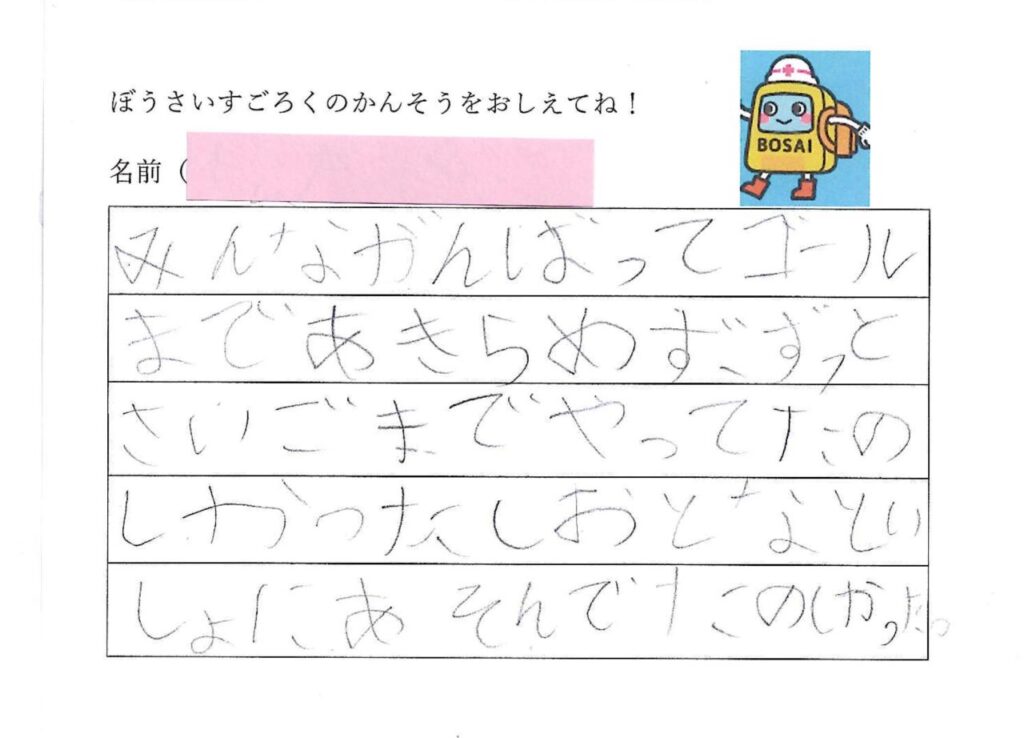 ぼうさいすごろくのかんそうをおしえてね！
BOSAI
名前（
みんながんばってゴール
まであきらめず、ずっと
さいごまでやってたの
しかったしおとなとい
しょにあそんでたのしかった。